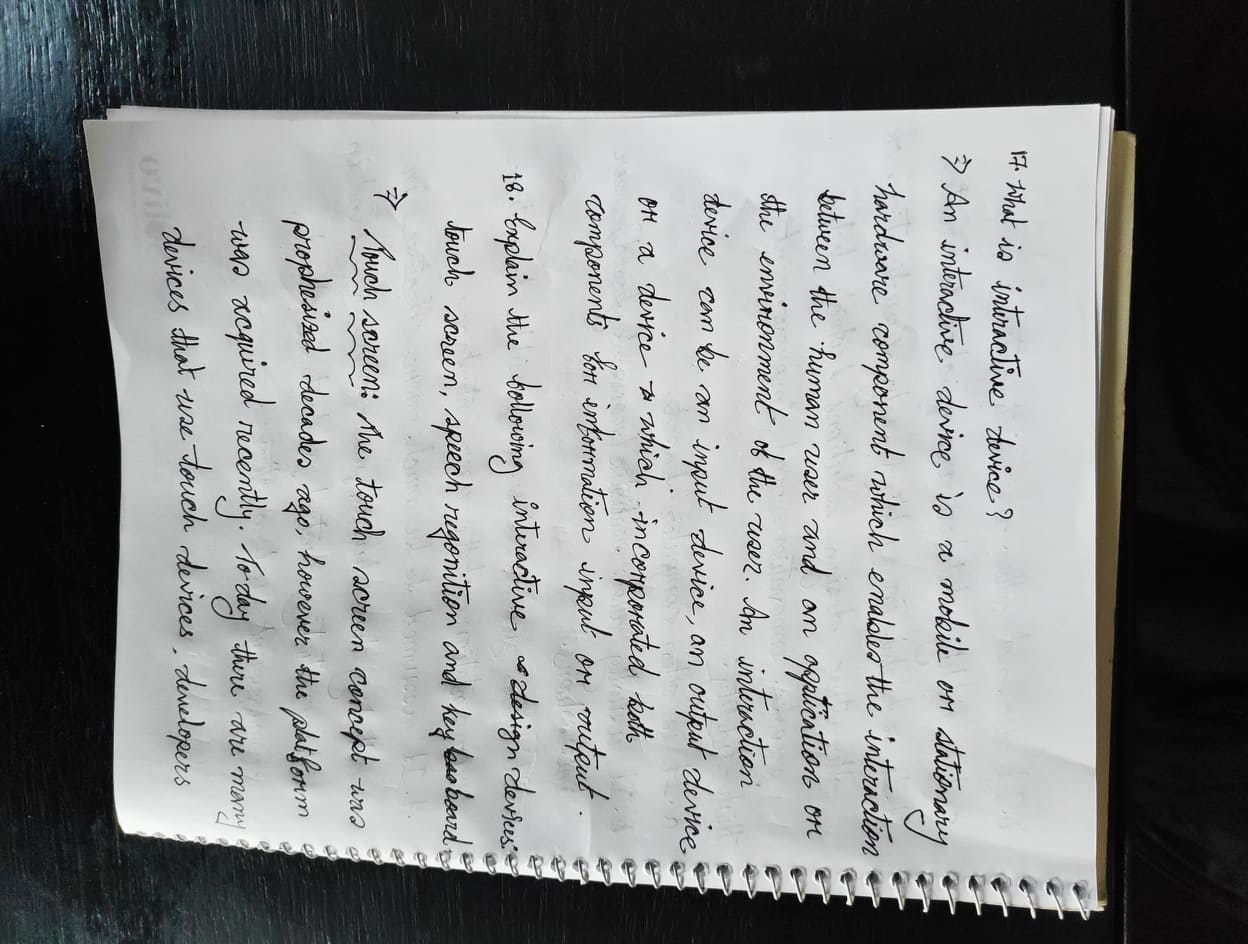 17. What is interactive device?
⇒ An interactive device is a mobile or stationary
hardware component which enables the interaction
between the human user and an application or
the environment of the user. An interaction
device can be an input device, an output device
or a device which incorporated both
components for information input or output.
18. Explain the following interactive design devices:
touch screen, speech regonition and key board
⇒ Touch screen: The touch screen concept was
prophesized decades ago, however the platform
was acquired recently. Today there are many
devices that use touch devices. developers